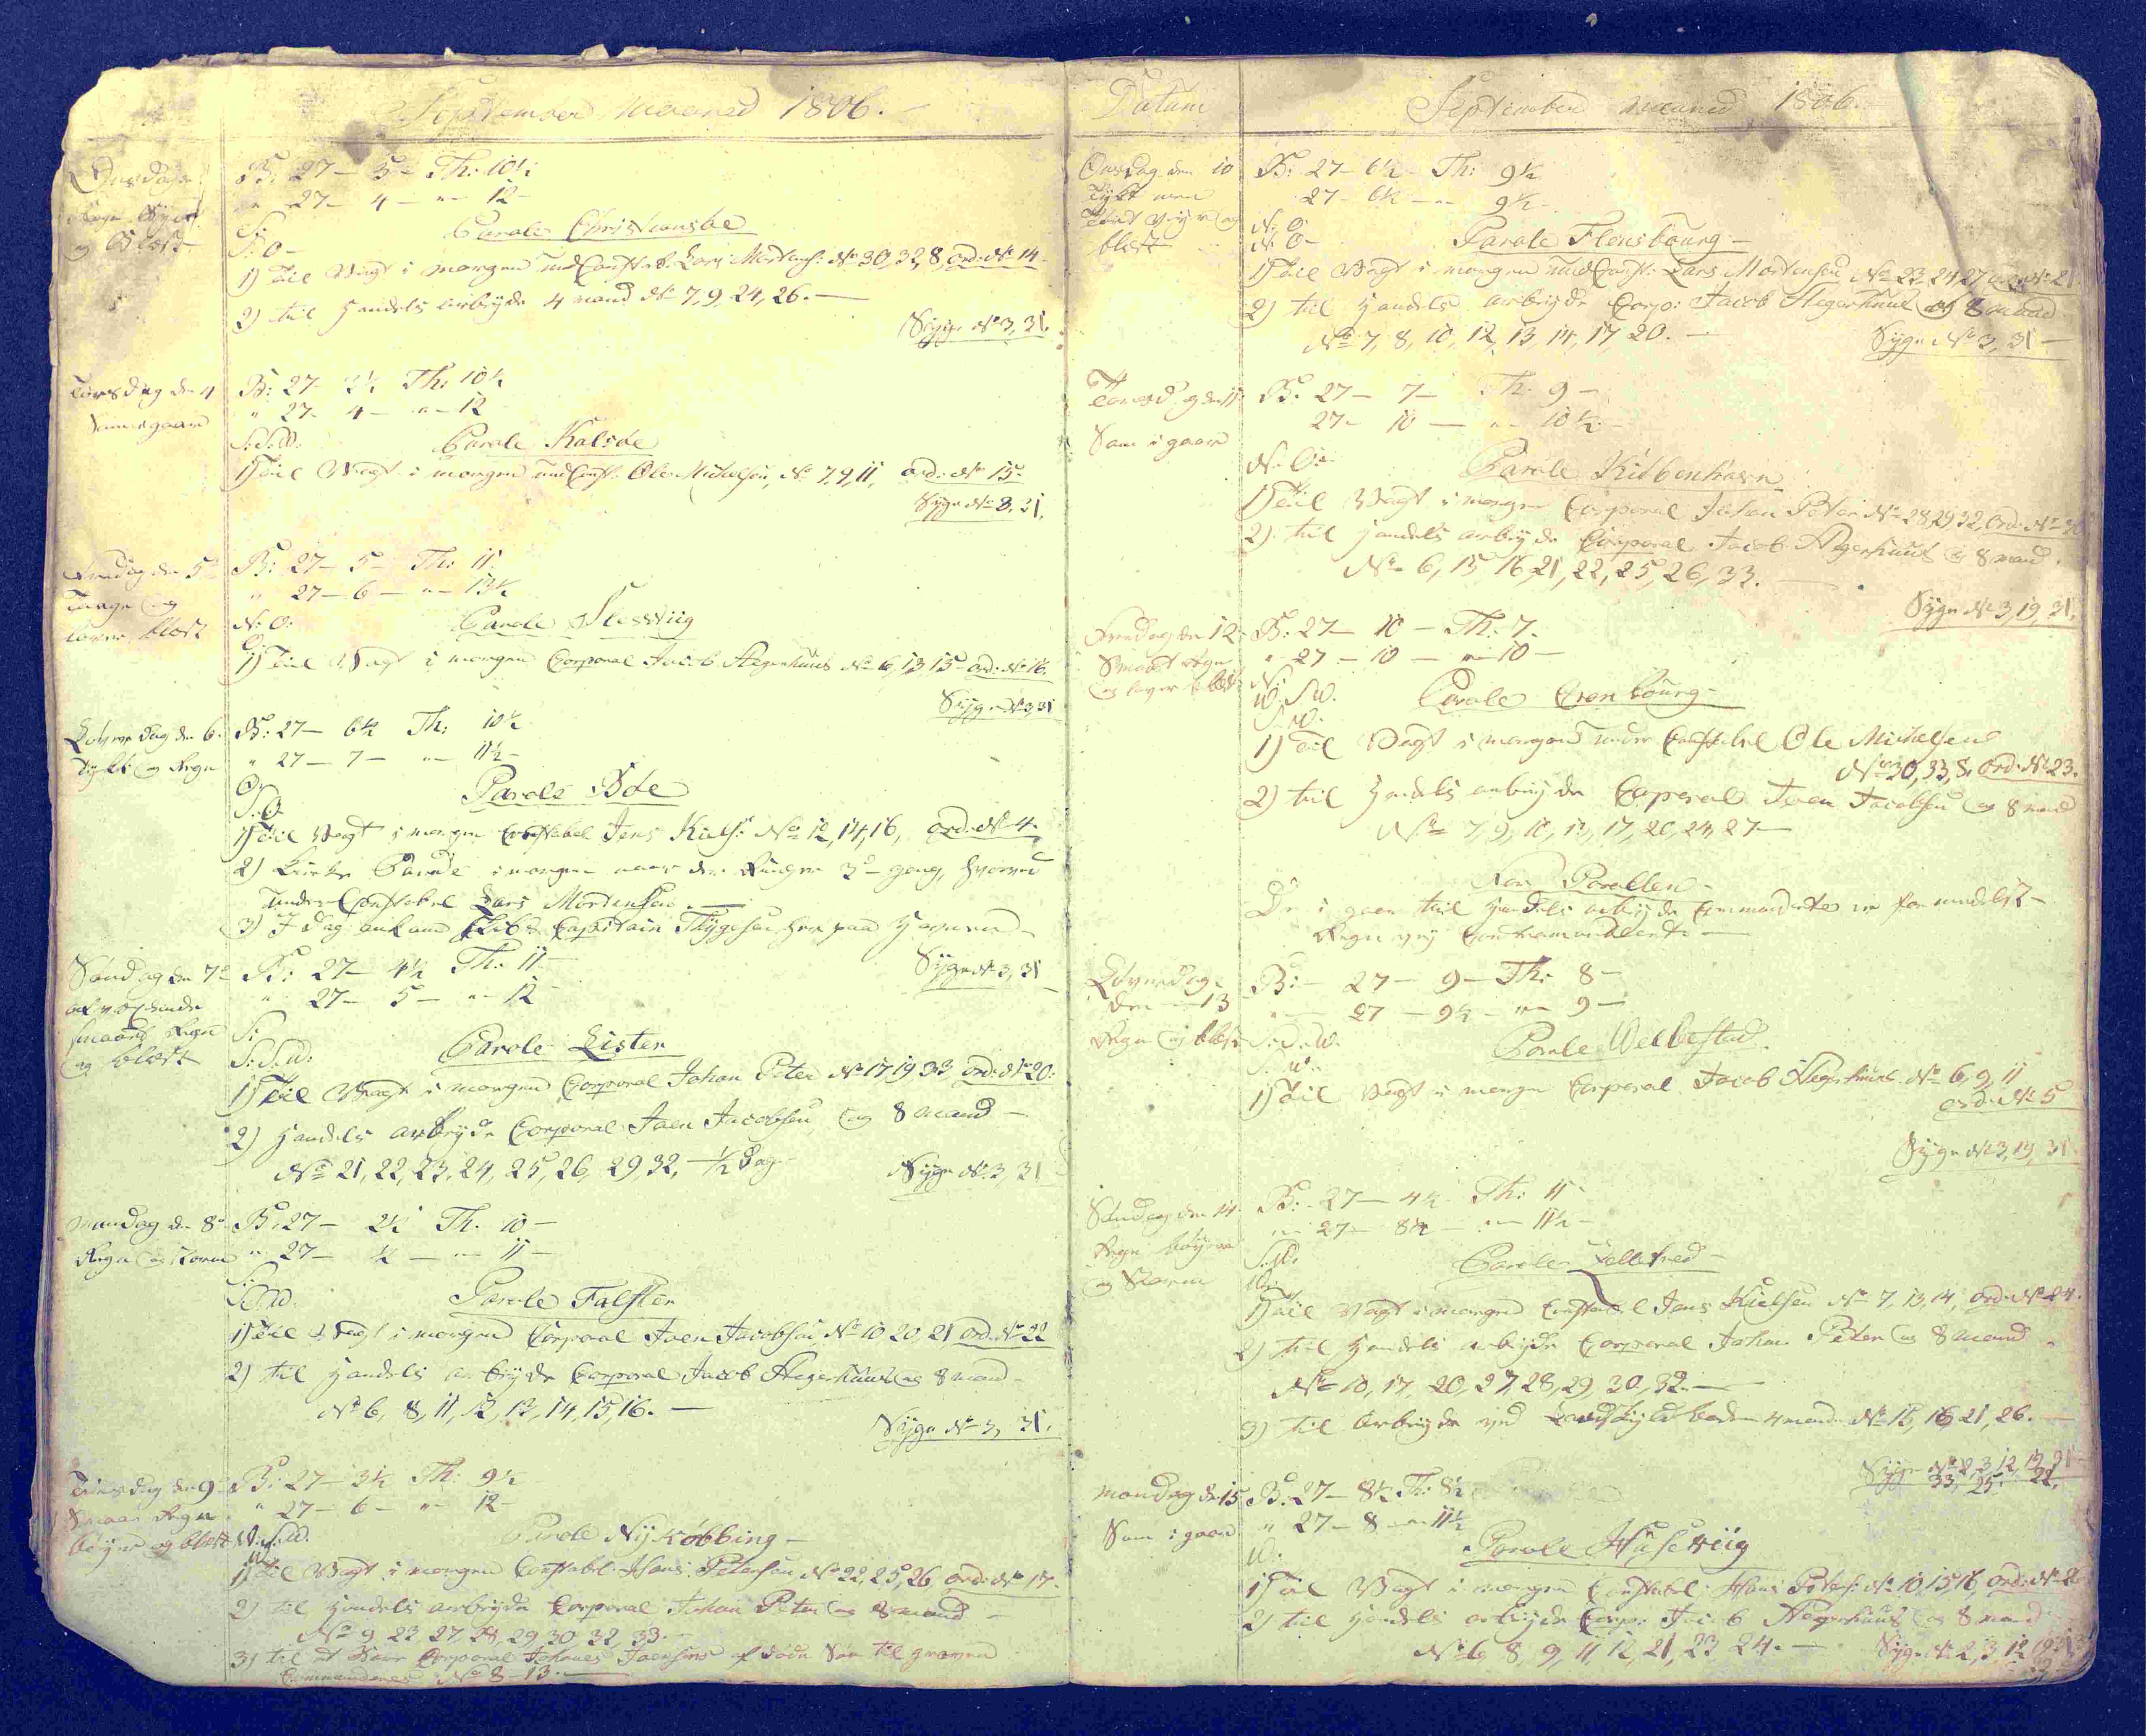 September Maaned 1806.
Onsdagen
Regn
og Blæst
B: 27 — 3 — Th: 10½
" 27 — 4 — " 12 —
S: O —
Parole Christiansøe
1) Til Vagt i morgen und Constab: Lars Mortens: No 30, 32, 8, ord: No 14.
2) til Handels arbeyde 4 mand No 7, 9, 24, 26. —
Syge No 3, 31.
Torsdag den 4
Som i gaar
B: 27 — 2½ Th: 10½
" 27 — 4 — " — 12
S.S.W.
Parole Kalsøe
1) Til Vagt i morgen und Const: Ole Michelsen, No 7, 9, 11, ord: No 15.
Syge No 3, 31.
Fredag den 5
og
blæst
B: 27 — 5 — Th: 11.
" 27 — 6 — " — 13½
N: O:
O:
Parole Slesviig
1) Til Vagt i morgen Corporal Jacob Hegerhuus No 6, 13, 15 — ord: No 16.
Syge No 3, 31
Løverdag den 6.
Tykt og Regn
B: 27 — 6½ Th: 10½
" 27 — 7 — " — 11½ —
O:
S.O.
Parole Boe
1) Til Vagt i morgen Constabel Jens Kiels: No 12, 14, 16, ord: No 4.
2) Kirke Parade i morgen naar der Ringer 3die gang, hvorved
Under Constabel Lars Mortensen. —
3) I Dag ankom Skibs Capitain Thygesen her paa Havnen —
Syge No 3, 31
Søndag den 7
afvexlende
smaae Regn
og blæst
B: 27 — 4½ Th: 11 —
" 27 — 5 — " — 12
S:
S:S.W:
Parole Lister
1) Til Vagt i morgen Corporal Johan Peter No 17, 19, 33, ord: No 20.
2) Handels arbeyde Corporal Joen Jacobsen, og 8 mand —
No 21, 22, 23, 24, 25, 26, 29, 32, — ½ Dag —
Syge No 3, 31
Mandag den 8
Regn og Storm
B: 27 — 2½ Th: 10 —
" 27 — ½ — " — 11 —
S:
S.W.
Parole Falster
1) Til Vagt i morgen Corporal Joen Jacobsen No 10, 20, 21, ord: No 22
2) til Handels arbeyde Corporal Jacob Hegerhuus og 8 mand —
No 6, 8, 11, 12, 13, 14, 15, 16. —
Syge No 3, 31.
Tiirsdag den 9
Smaae Regn
bøyer og blæst
B: 27 — 3½ Th: 9½
" 27 — 6 — " — 12 —
W.S.W.
W.
Parole Nykøbbing —
1) Til Vagt i morgen Constabl: Hans Petersen No 22, 25, 26, ord: No 17.
2) til Handels arbeyde Corporal Johan Peter og 8 mand —
No 9, 23, 27, 28, 29, 30, 32, 33. —
3) til at bære Corporal Johanes Joensens af døde Søn til graven
Commanderes No 8 — 13. —
Datum
September Maaned 1806. —
Onsdag den 10
Tykt med
Tørt Veyr og
blæst —
B: 27 — 6½ — Th: 9½
27 — 6½ — " — 9½ —
N. O.
N: O —
Parole Flensbourg —
1) Til Vagt i morgen und Const: Lars Mortensen No 23, 24, 27, ord: No 21
2) til Handels arbeyde Corp: Jacob Hegerhuus og 8 mand
No 7, 8, 10, 12, 13, 14, 17, 20. —
Syge No 3, 31 —
Torsdag den 11
Som i gaar
B: 27 — 7 — Th. 9 —
27 — 10 — " — 10½ —
N. O:
Parole Kiøbenhavn
1) Til Vagt i morgen Corporal Johan Peter No 28, 29, 32, Ord: No
2) til Handels arbeyde Corporal Jacob Hegerhuus og 8 mand.
No 6, 15, 16, 21, 22, 25, 26, 33. —
Syge No 3, 19, 31.
Fredag den 12
Smaat Regn
og blæst
B: 27 — 10 — Th: 7.
" — 27 — 10 — " — 10 —
N:
W. S.W.
S.W.
Parole Cronbourg —
1) Til Vagt i morgen under Constabel Ole Michelsen
No 30, 33, 8, Ord: No 23.
2) til Handels arbeyde Corporal Joen Jacobsen og 8 mand
No 7, 9, 10, 13, 17, 20, 24, 27 —
For Parollen —
De i gaar til Handels arbeyde Commanderte er formedelst —
Regn vey Contramanderet —
Løverdag
den — 13
Regn og blæst
B: — 27 — 9 — Th: 8 —
" — 27 — 9½ — " — 9 —
S.S.W.
S.W.
Parole Welbestad.
1) Til Vagt i morgen Corporal Jacob Hegerhuus No 6, 9, 11
ord: No 5
Syge No 3, 19, 31.
Søndag den 14
Regn bøyer
og Storm
B: 27 — 4½ Th: 11 —
" — 27 — 8½ — " — 11½ —
S.W.
W.
Parole
1) Til Vagt i morgen Constabel Jens Kielsen No 7, 13, 14, ord: No 24.
2) til Handels arbeyde Corporal Johan Peter og 8 mand
No 10, 17, 20, 27, 28, 29, 30, 32. —
3) til Arbeyde ved 4 mand No 15, 16, 21, 26. —
Syge No 2, 3, 12, 19, 31
33, 25, 22.
Mandag den 15
Som i gaar
B: 27 — 8½ Th: 8½
" 27 — 8 — " — 11½
W.
Parole Husewiig
1) Til Vagt i morgen Constabel Hans Peters: No 10, 15, 16, ord: No
2) til Handels arbeyde Corp: Jacob Hegerhuus og 8 mand
No 6, 8, 9, 11, 12, 21, 23, 24. —
Syge No 2, 3, 12, 19, 31